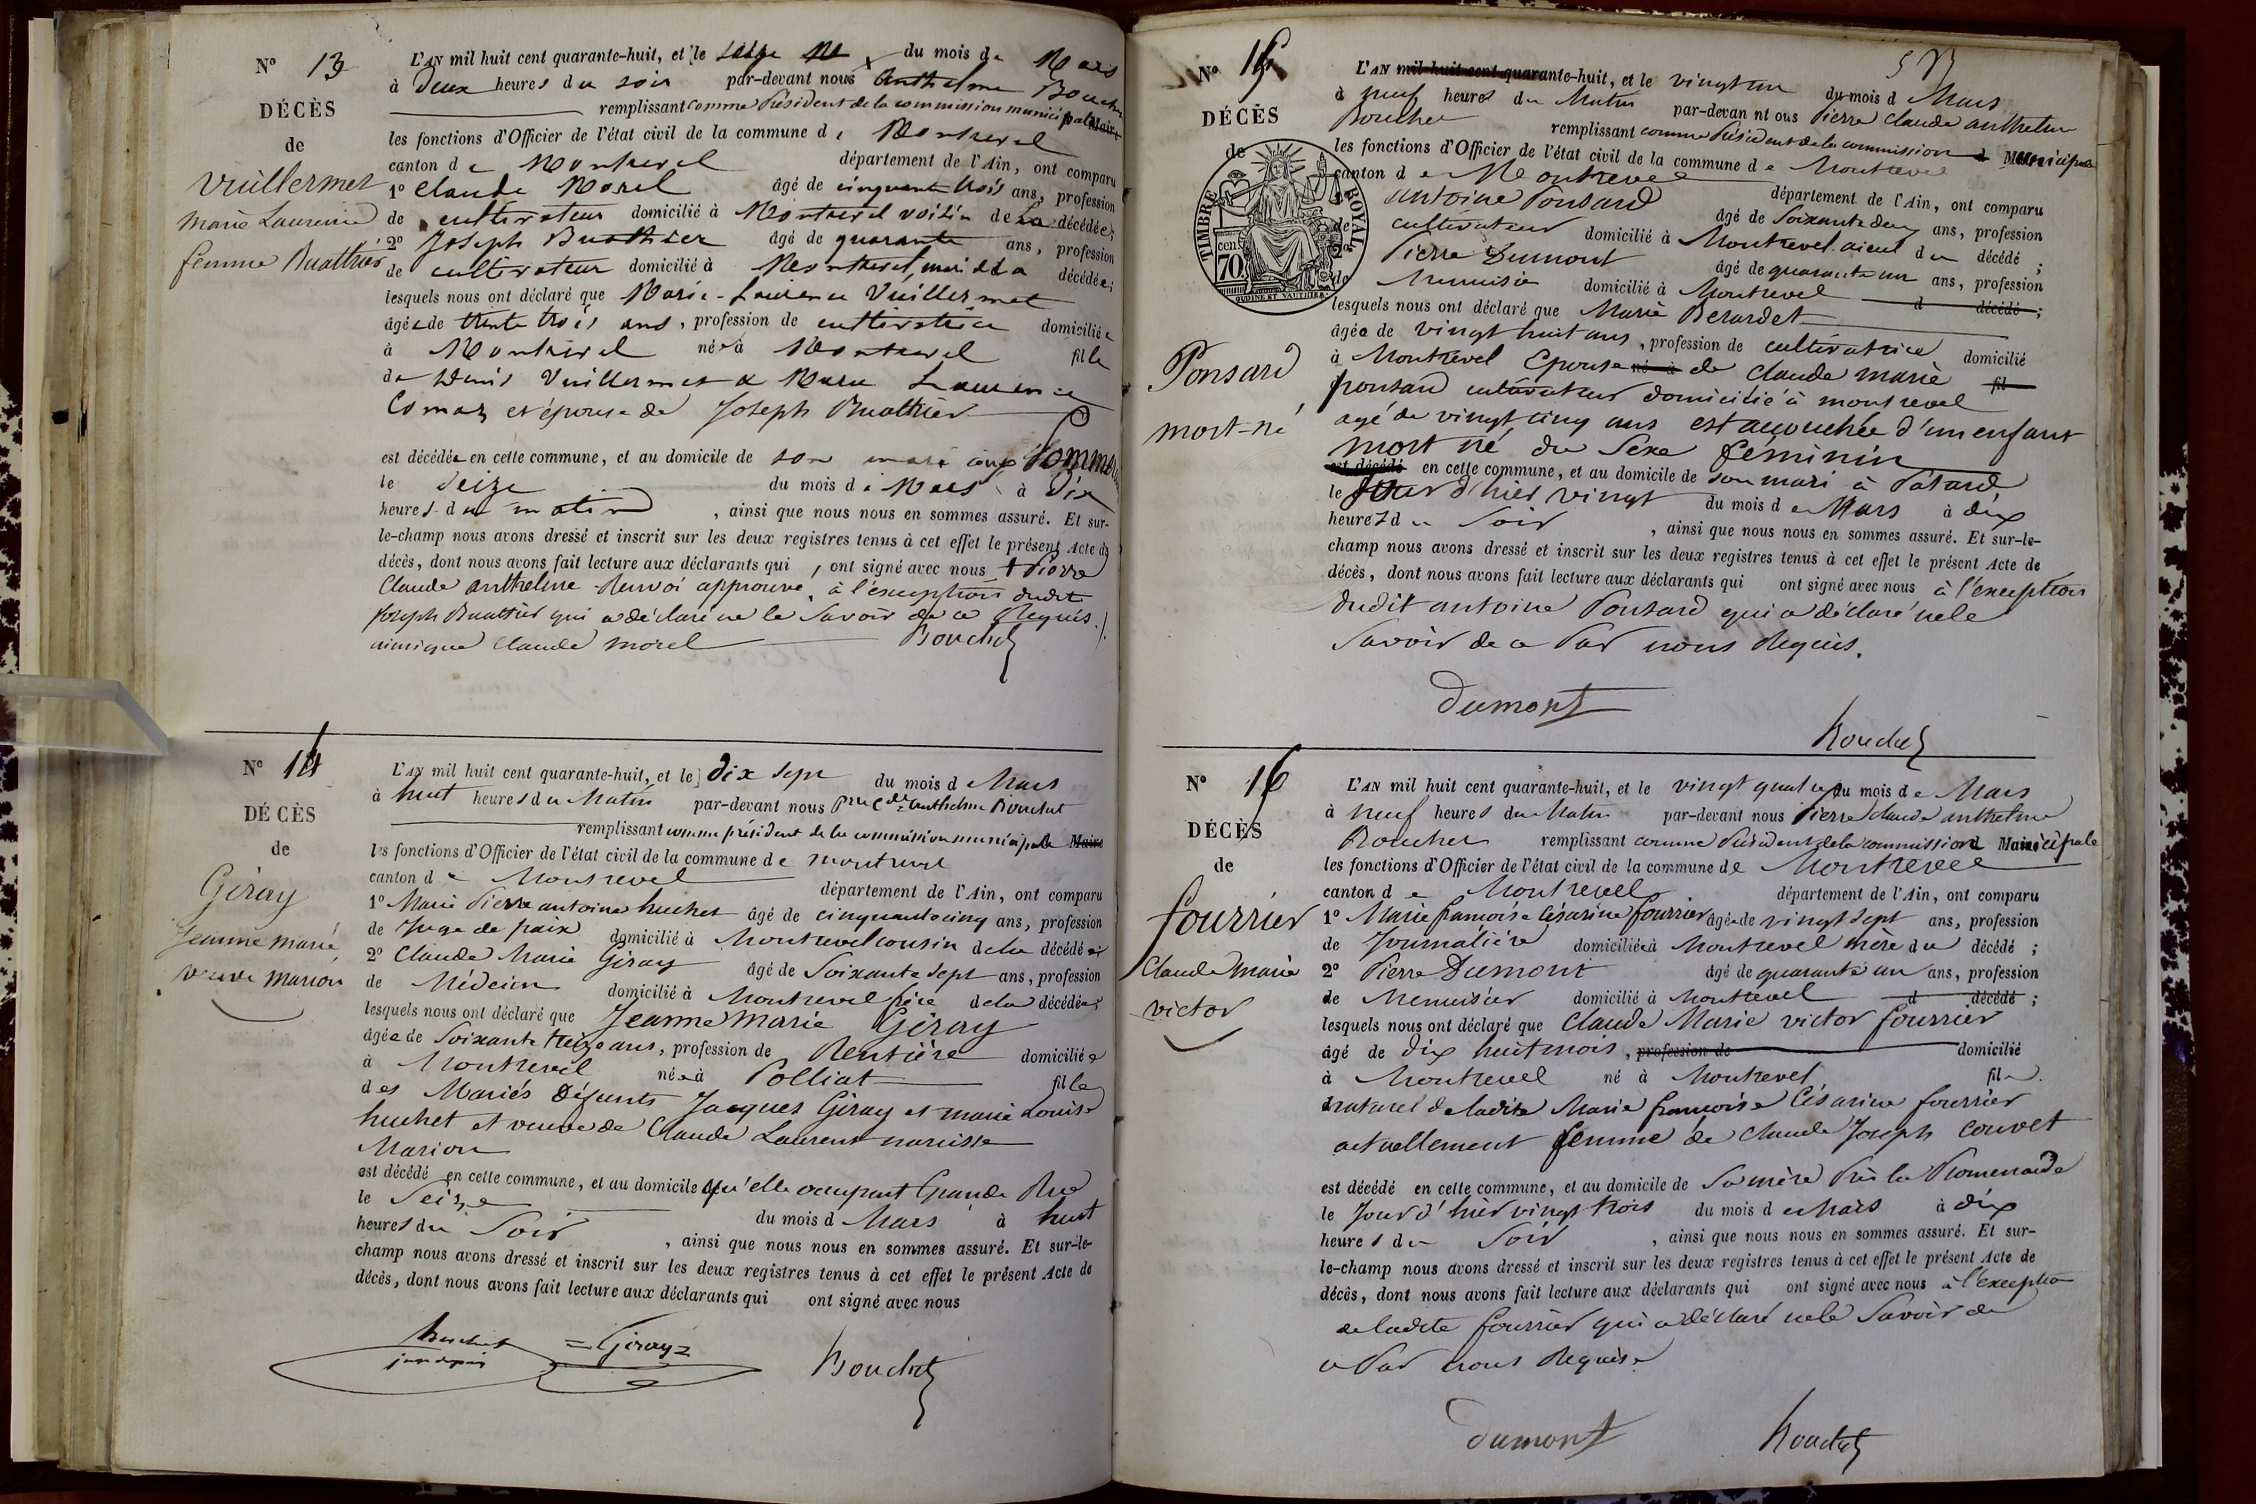 N° 13
DÉCÈS
de
Vuillermet
Marie Laurence
femme Buathier
L'AN mil huit cent quarante-huit, et le seize du mois de Mars
à Deux heures du soir par-devant nous Anthelme Bouchet
remplissant comme Président de la commission municipale Maire
les fonctions d'Officier de l'état civil de la commune de Montrevel
canton de Montrevel département de l'Ain, ont comparu
1° Claude Morel âgé de cinquante trois ans, profession
de cultivateur domicilié à Montrevel voisin de la décédée;
2° Joseph Buathier âgé de quarante ans, profession
de cultivateur domicilié à Montrevel, mari de la décédée;
lesquels nous ont déclaré que Marie-Laurence Vuillermet
âgée de trente trois ans, profession de cultivatrice domiciliée
à Montrevel née à Montrevel fille
de Denis Vuillermet & Marie Laurence
Comas et épouse de Joseph Buathier
est décédée en cette commune, et au domicile de son mari
le Seize du mois de Mars à Dix
heures du matin, ainsi que nous nous en sommes assuré. Et sur-
le-champ nous avons dressé et inscrit sur les deux registres tenus à cet effet le présent Acte de
décès, dont nous avons fait lecture aux déclarants qui, ont signé avec nous + Pierre
Claude anthelme Renvoi approuvé, à l'exception dudit
Joseph Buathier qui a déclaré ne le Savoir de ce Requis./.
Claude morel Bouchet
N° 14
DÉCÈS
de
Giray
Jeanne marie
veuve marion
L'AN mil huit cent quarante-huit, et le dix sept du mois de Mars
à huit heures du Matin par-devant nous Pre Cde Anthelme Bouchet
remplissant comme président de la commission municipale Maire
les fonctions d'Officier de l'état civil de la commune de montrevel
canton de Montrevel département de l'Ain, ont comparu
1° Marie Pierre antoine huchet âgé de cinquante cinq ans, profession
de Juge de paix domicilié à Montrevel cousin de la décédée
2° Claude Marie Giray âgé de Soixante sept ans, profession
de Médecin domicilié à Montrevel frère de la décédée;
lesquels nous ont déclaré que Jeanne Marie Giray
âgée de Soixante treize ans, profession de Rentière domiciliée
à Montrevel née à Polliat fille
des Mariés Défunts Jacques Giray et marie Louise
huchet et veuve de Claude Laurent narcisse
Marion
est décédé en cette commune, et au domicile qu'elle occupait Grande Rue
le Seize du mois de Mars à huit
heures du Soir, ainsi que nous nous en sommes assuré. Et sur-le-
champ nous avons dressé et inscrit sur les deux registres tenus à cet effet le présent Acte de
décès, dont nous avons fait lecture aux déclarants qui ont signé avec nous
huchet Giray
juge de paix Bouchet
N° 15
DÉCÈS
de
TIMBRE ROYAL
70 cen
OUDINÉ ET VAUTHIER
Ponsard
mort-né
L'AN mil huit cent quarante-huit, et le vingt un du mois de Mars
à neuf heures du Matin par-devant nous Pierre Claude anthelme
Bouchet remplissant comme Président de la commission Municipale
les fonctions d'Officier de l'état civil de la commune de Montrevel
canton de Montrevel département de l'Ain, ont comparu
antoine Ponsard âgé de Soixante deux ans, profession
de cultivateur domicilié à Montrevel aieul du décédé;
2° Pierre Dumont âgé de quarante un ans, profession
de Menuisier domicilié à Montrevel d décédé;
lesquels nous ont déclaré que Marie Berardet
âgée de vingt huit ans, profession de cultivatrice domicilié
à Montrevel Epouse né à de Claude marie fil
ponsard cultivateur domicilié à montrevel
agé de vingt cinq ans est accouchée d'un enfant
mort né du Sexe féminin
est décédé en cette commune, et au domicile de son mari à
le jour d'hier vingt du mois de Mars à dix
heures du Soir, ainsi que nous nous en sommes assuré. Et sur-le-
champ nous avons dressé et inscrit sur les deux registres tenus à cet effet le présent Acte de
décès, dont nous avons fait lecture aux déclarants qui ont signé avec nous à l'exception
dudit antoine Ponsard qui a déclaré ne le
Savoir de ce Par nous Requis.
Dumont
Bouchet
N° 16
DÉCÈS
de
fourrier
Claude Marie
victor
L'AN mil huit cent quarante-huit, et le vingt quatre du mois de Mars
à neuf heures du Matin par-devant nous Pierre Claude anthelme
Bouchet remplissant comme Président de la commission Municipale
les fonctions d'Officier de l'état civil de la commune de Montrevel
canton de Montrevel département de l'Ain, ont comparu
1° Marie françoise Césarine fourrier âgée de vingt sept ans, profession
de Journalière domiciliée à Montrevel mère du décédé;
2° Pierre Dumont âgé de quarante un ans, profession
de Menuisier domicilié à Montrevel d décédé;
lesquels nous ont déclaré que Claude Marie victor fourrier
âgé de dix huit mois, profession de domicilié
à Montrevel né à Montrevel fils
naturel de ladite Marie françoise Césarine fourrier
actuellement femme de Claude Joseph Couvet
est décédé en cette commune, et au domicile de Sa mère Près la Promenade
le Jour d'hier vingt trois du mois de Mars à dix
heures du Soir, ainsi que nous nous en sommes assuré. Et sur-
le-champ nous avons dressé et inscrit sur les deux registres tenus à cet effet le présent Acte de
décès, dont nous avons fait lecture aux déclarants qui ont signé avec nous à l'exception
de ladite fourrier qui a déclaré ne le Savoir de
ce Par nous Requise
Dumont Bouchet